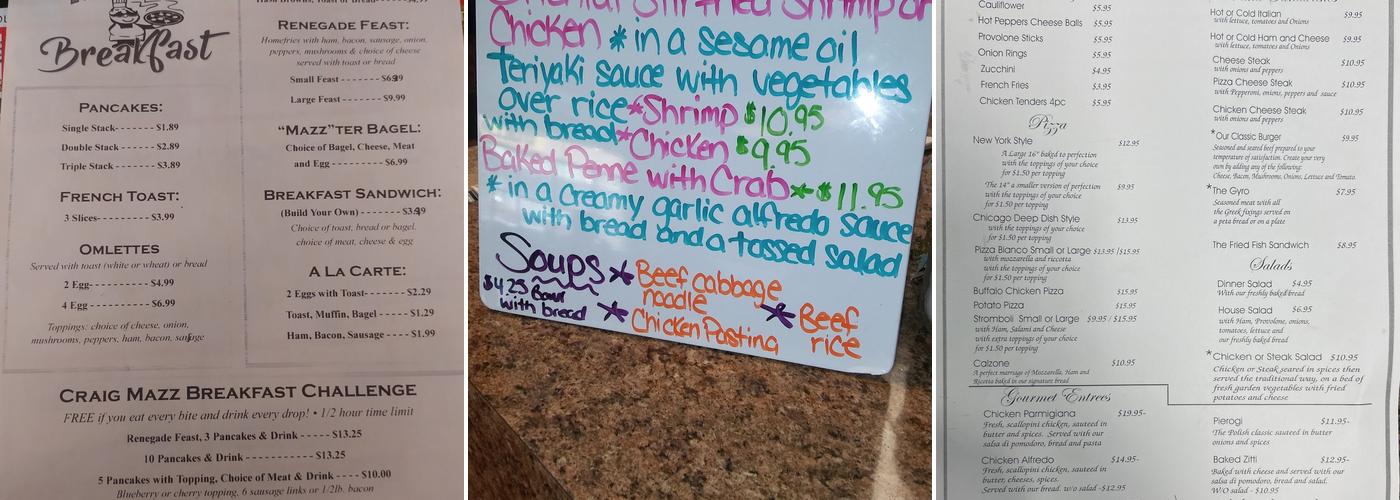 Breakfast
PANCAKES:
Single Stack------- $1.89
Double Stack------- $2.89
Triple Stack------- $3.89
FRENCH TOAST:
3 Slices------- $3.99
OMLETTES
Served with toast (white or wheat) or bread
2 Egg------- $4.99
4 Egg ------- $6.99
Toppings: choice of cheese, onion,
mushrooms, peppers, ham, bacon, sausage
RENEGADE FEAST:
Homefries with ham, bacon, sausage, onion,
peppers, mushrooms & choice of cheese
served with toast or bread
Small Feast -------
Large Feast------- $9.99
“MAZZ”TER BAGEL:
Choice of Bagel, Cheese, Meat
and Egg ------- $6.99
BREAKFAST SANDWICH:
(Build Your Own) -------
Choice of toast, bread or bagel,
choice of meat, cheese & egg
A LA CARTE:
2 Eggs with Toast------- $2.29
Toast, Muffin, Bagel ----- $1.29
Ham, Bacon, Sausage ---- $1.99
CRAIG MAZZ BREAKFAST CHALLENGE
FREE if you eat every bite and drink every drop! • 1/2 hour time limit
Renegade Feast, 3 Pancakes & Drink ----- $13.25
10 Pancakes & Drink ------- $13.25
5 Pancakes with Topping, Choice of Meat & Drink ---- $10.00
Blueberry or cherry topping, 6 sausage links or 1/2lb. bacon
Oriental Stir fried Shrimp or
Chicken * in a sesame oil
teriyaki sauce with vegetables
over rice * Shrimp $10.95
with bread * Chicken $9.95
Baked Penne with Crab * $11.95
* in a creamy garlic alfredo sauce
with bread and a tossed salad
Soups * Beef cabbage
noodle
$4.25 Bowl
with bread * Chicken Pastina
* Beef
rice
Cauliflower $5.95
Hot Peppers Cheese Balls $5.95
Provolone Sticks $5.95
Onion Rings $5.95
Zucchini $4.95
French Fries $3.95
Chicken Tenders 4pc $5.95
Pizza
New York Style $12.95
A Large 16" baked to perfection
with the toppings of your choice
for $1.50 per topping
The 14" a smaller version of perfection $9.95
with the toppings of your choice
for $1.50 per topping
Chicago Deep Dish Style $13.95
with the toppings of your choice
for $1.50 per topping
Pizza Bianco Small or Large $13.95 /$15.95
with mozzarella and riccotta
with the toppings of your choice
for $1.50 per topping
Buffalo Chicken Pizza $15.95
Potato Pizza $15.95
Stromboli Small or Large $9.95 / $15.95
with Ham, Salami and Cheese
with extra toppings of your choice
for $1.50 per topping
Calzone $10.95
A perfect marriage of Mozzarella, Ham and
Ricotta baked in our signature bread
Gourmet Entrees
Chicken Parmigiana $19.95-
Fresh, scallopini chicken, sauteed in
butter and spices. Served with our
salsa di pomodoro, bread and pasta
Chicken Alfredo $14.95-
Fresh, scallopini chicken, sauteed in
butter, cheeses, spices.
Served with our bread. w/o salad -$12.95
Hot or Cold Italian $9.95
with lettuce, tomatoes and Onions
Hot or Cold Ham and Cheese $9.95
with lettuce, tomatoes and Onions
Cheese Steak $10.95
with onions and peppers
Pizza Cheese Steak $10.95
with Pepperoni, onions, peppers and sauce
Chicken Cheese Steak $10.95
with onions and peppers
*Our Classic Burger $9.95
Seasoned and seared beef prepared to your
temperature of satisfaction. Create your very
own by adding any of the following:
Cheese, Bacon, Mushrooms, Onions, Lettuce and Tomato.
*The Gyro $7.95
Seasoned meat with all
the Greek fixings served on
a peta bread or on a plate
The Fried Fish Sandwich $8.95
Salads
Dinner Salad $4.95
With our freshly baked bread
House Salad $6.95
with Ham, Provolone, onions,
tomatoes, lettuce and
our freshly baked bread
*Chicken or Steak Salad $10.95
Chicken or Steak seared in spices then
served the traditional way, on a bed of
fresh garden vegetables with fried
potatoes and cheese
Pierogi $11.95-
The Polish classic sauteed in butter
onions and spices
Baked Zitti $12.95-
Baked with cheese and served with our
salsa di pomodoro, bread and salad.
W/O salad - $10.95